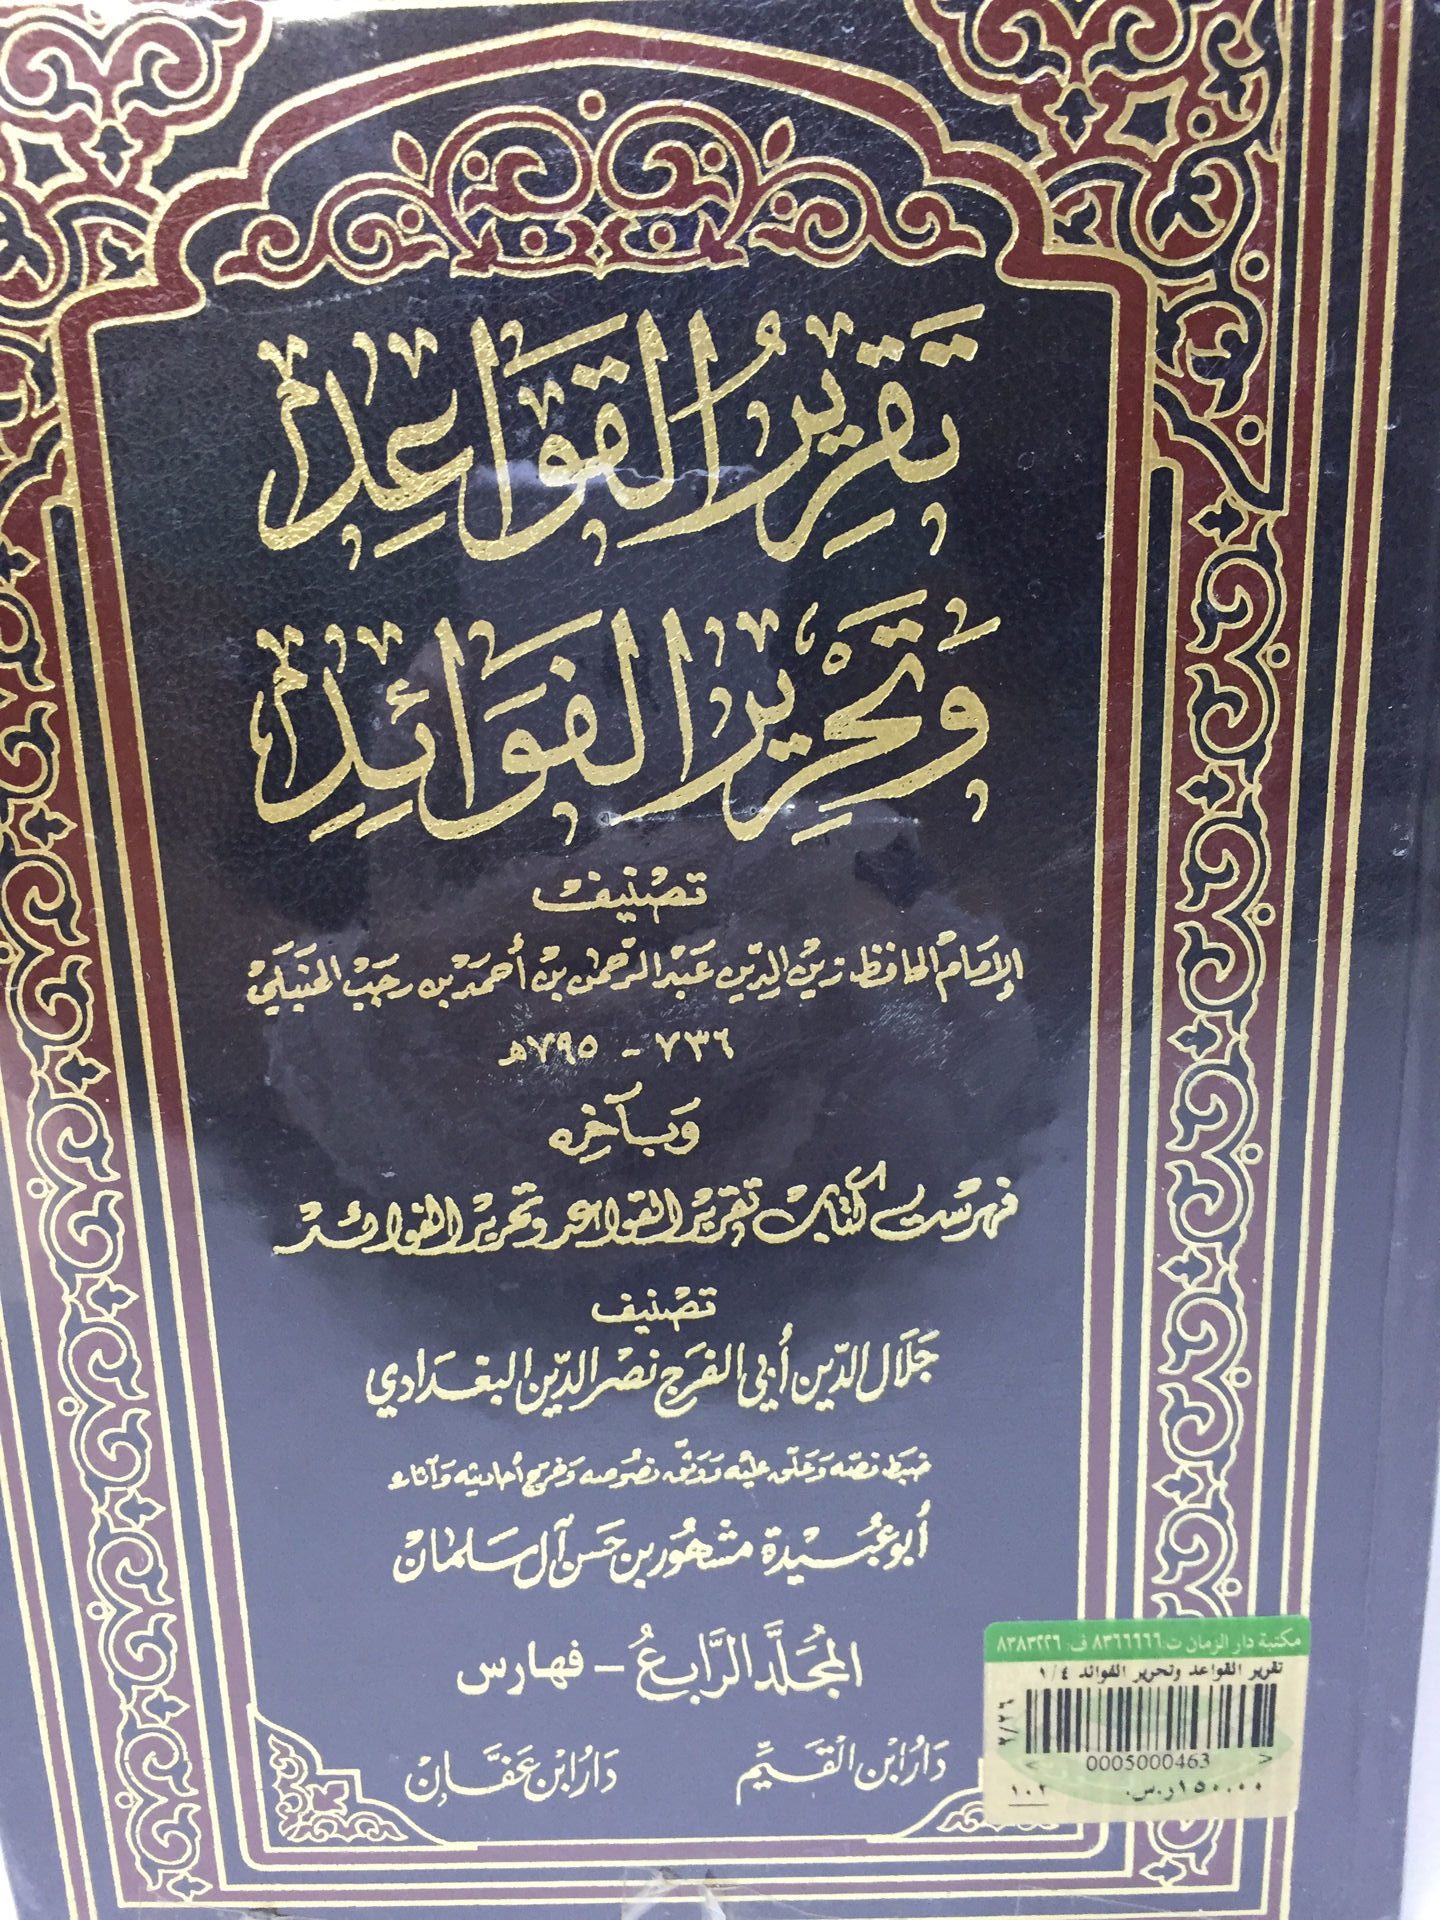 تَقرِيرُ القَوَاعِد
وَتَحْرِيرُ الفَوَائِد
تصنيف
الإمام الحافظ زين الدين عبد الرحمن بن أحمد بن رجب الحنبلي
٧٣٦ - ٧٩٥هـ
وبآخره
فهرست كتاب تقرير القواعد وتحرير الفوائد
تصنيف
جلال الدين أبي الفرج نصر الدين البغدادي
ضبط نصه وعلق عليه ووثق نصوصه وخرج أحاديثه وآثاره
أبو عبيدة مشهور بن حسن آل سلمان
المجلد الرابع - فهارس
دار ابن القيم
دار ابن عفان
مكتبة دار الزمان ت: ٨٣٦٦٦٦٦ ف: ٨٣٨٣٢٢٦
تقرير القواعد وتحرير الفوائد ١/٤
٢/٢٦
0005000463
١٥٠.٠٠ر.س.
١٠٢